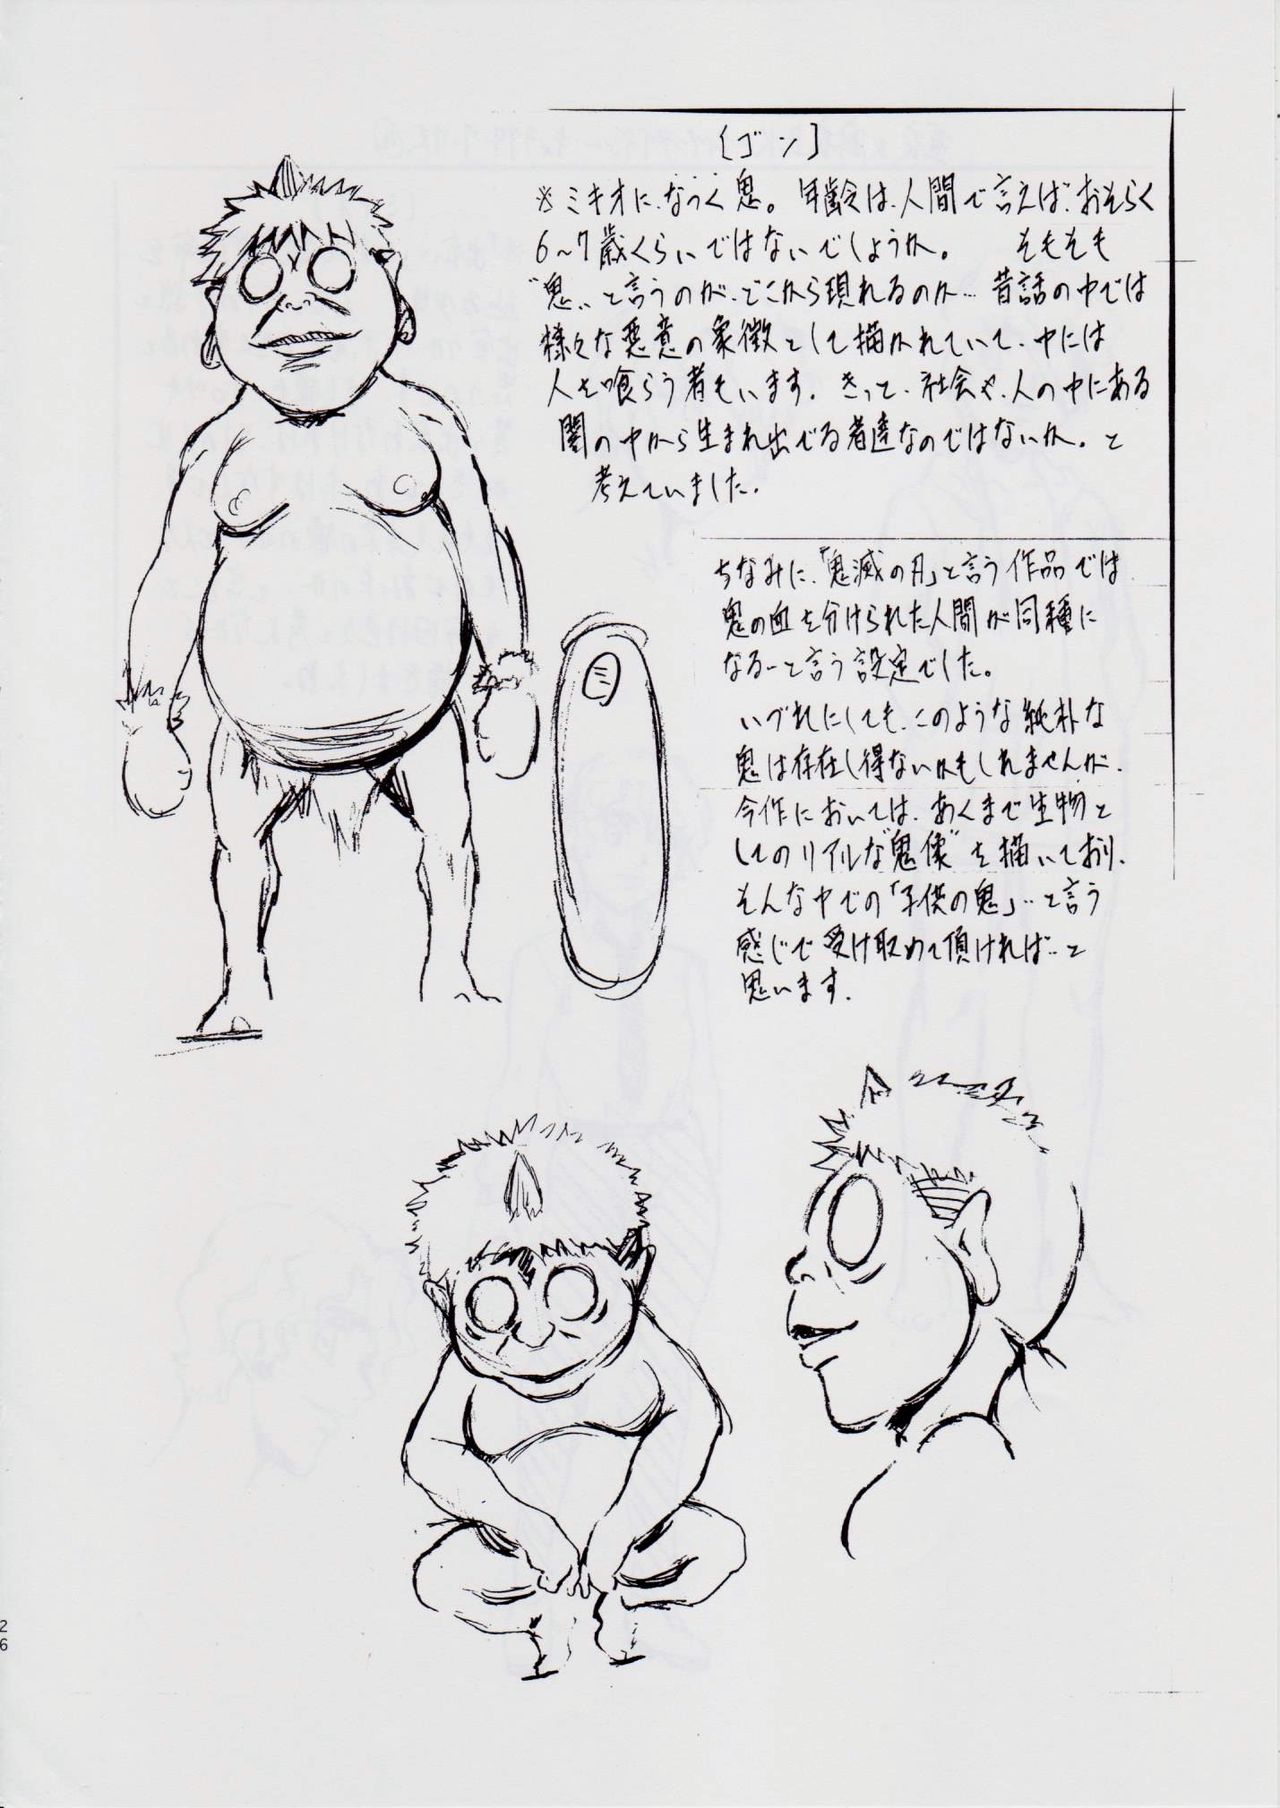 ［ゴン］
※ミキオに、なつく鬼。年齢は、人間で言えば、おそらく
6〜7歳くらいではないでしょうか。 そもそも
"鬼"と言うのが、どこから現れるのか… 昔話の中では
様々な悪意の象徴として描かれていて、中には
人を喰らう者もいます。きっと、社会や、人の中にある
闇の中から生まれ出でる者達なのではないか。と
考えていました。
ちなみに、「鬼滅の刃」と言う作品では
鬼の血を分けられた人間が同種に
なる…と言う設定でした。
いづれにしても、このような純朴な
鬼は存在し得ないかもしれませんが、
今作においては、あくまで生物と
してのリアルな"鬼像"を描いており、
そんな中での「子供の鬼」…と言う
感じで受け取めて頂ければ…と
思います。
26